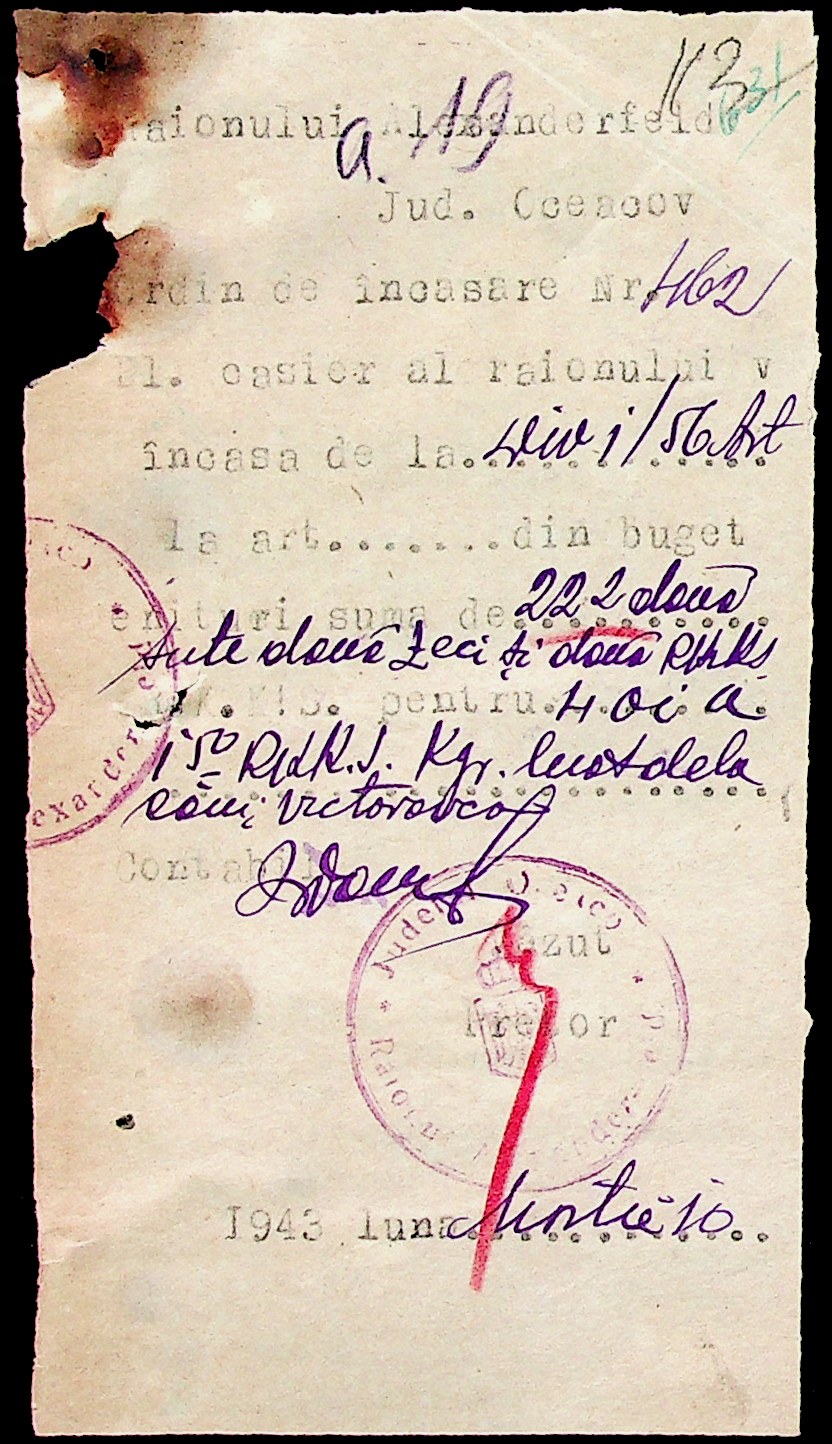 113
631
a. 19
Raionului Alexanderfeld
Jud. Oceacov
Ordin de încasare Nr. 462
Dl. casier al raionului v
încasa de la. Div 1/56 Art
la art........din buget
enituri suma de 222 două
sute două zeci și două RKKS
pentru 4 oi a
1 50 RKK.S. Kgr. luat dela
Victorovca
Contabil
Văzut
Pretor
Județul Oceacov
Raionul Alexanderfeld
1943 luna Martie 10